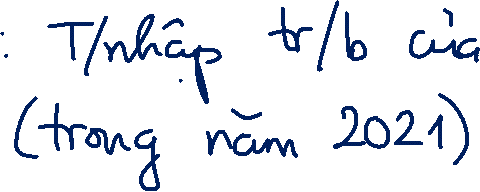 : T/nhập tr/b của
(trong năm 2021)